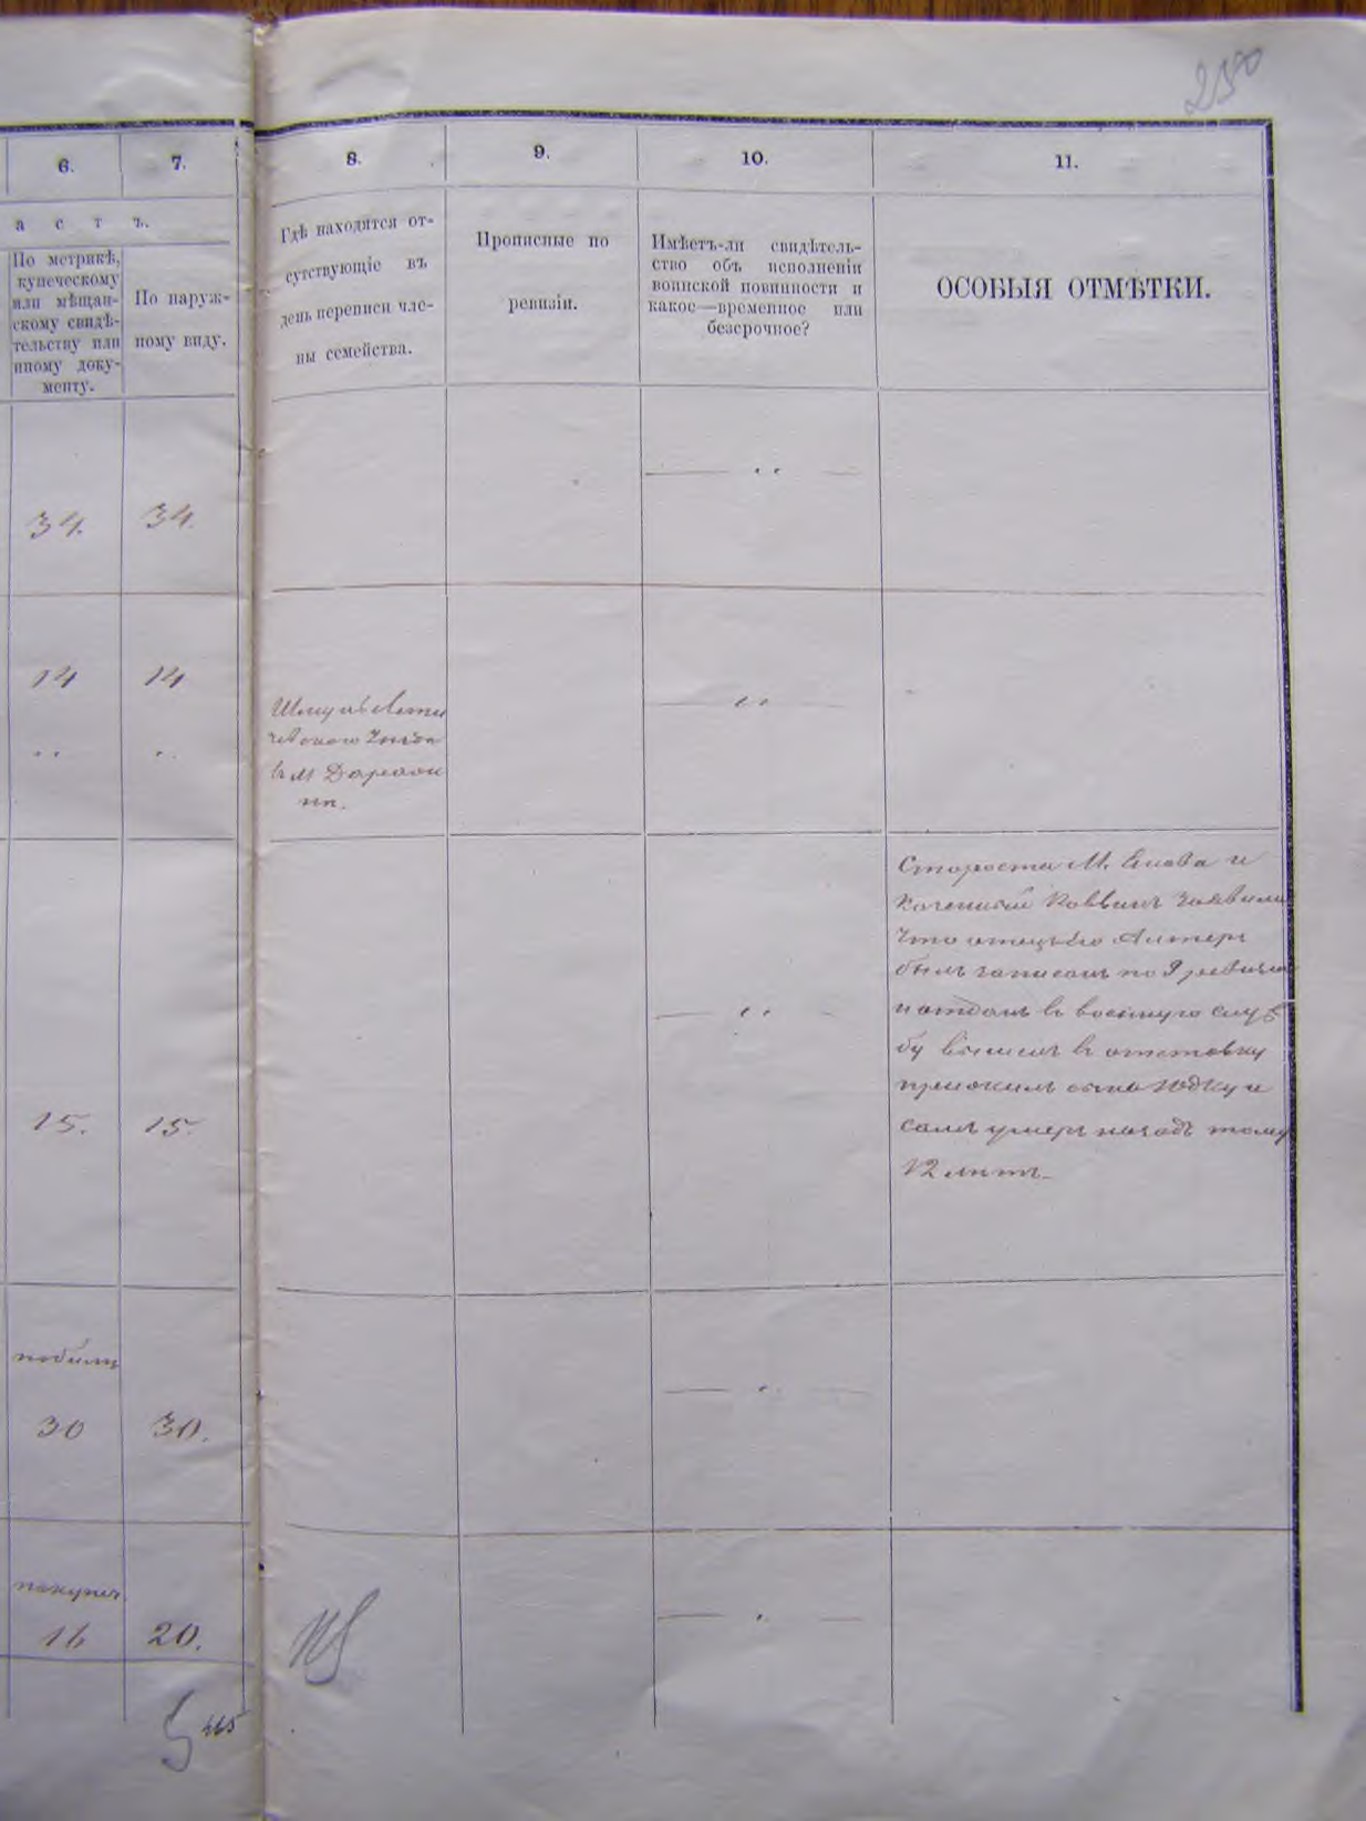 250
6.
7.
8.
9.
10.
11.
а с т ъ.
По метрикѣ,
купеческому
или мѣщан-
скому свидѣ-
тельству или
иному доку-
менту.
По наруж-
ному виду.
Гдѣ находятся от-
сутствующіе въ
день переписи чле-
ны семейства.
Прописные по
ревизіи.
Имѣетъ-ли свидѣтель-
ство объ исполненіи
воинской повинности и
какое—временное или
безсрочное?
ОСОБЫЯ ОТМѢТКИ.
34.
34.
14
14
Шмуль
в м
Староста М. и
заявили
что отецъ его Алтеръ
былъ записанъ по 9 ревизіи
и отданъ въ военную служ
бу вышелъ въ отставку
прижилъ сына Юдку и
самъ умеръ назадъ тому
12 лѣтъ
15.
15.
30
30.
16
20.